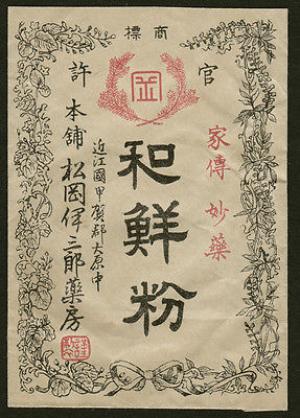 商標
官許
家傳妙藥
和鮮粉
近江國甲賀郡大原中
本舗 松岡伊三郎薬房